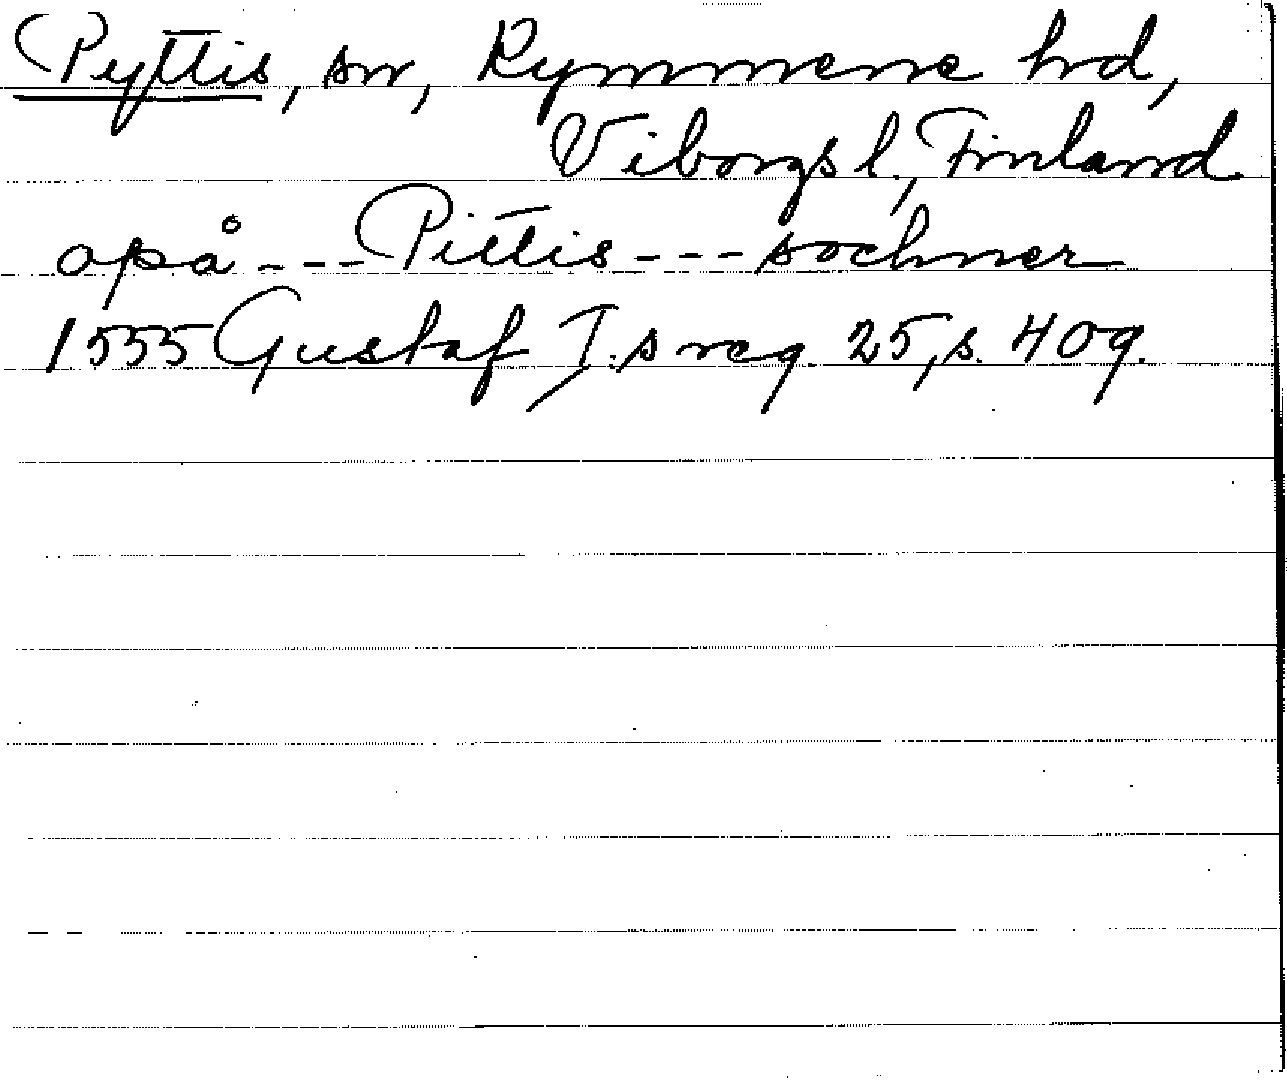 Pyttis, sn, Kymmene hd,
Viborgs l., Finland
opå --- Pittis --- sochner
1555 Gustaf I:s reg. 25, s. 409.